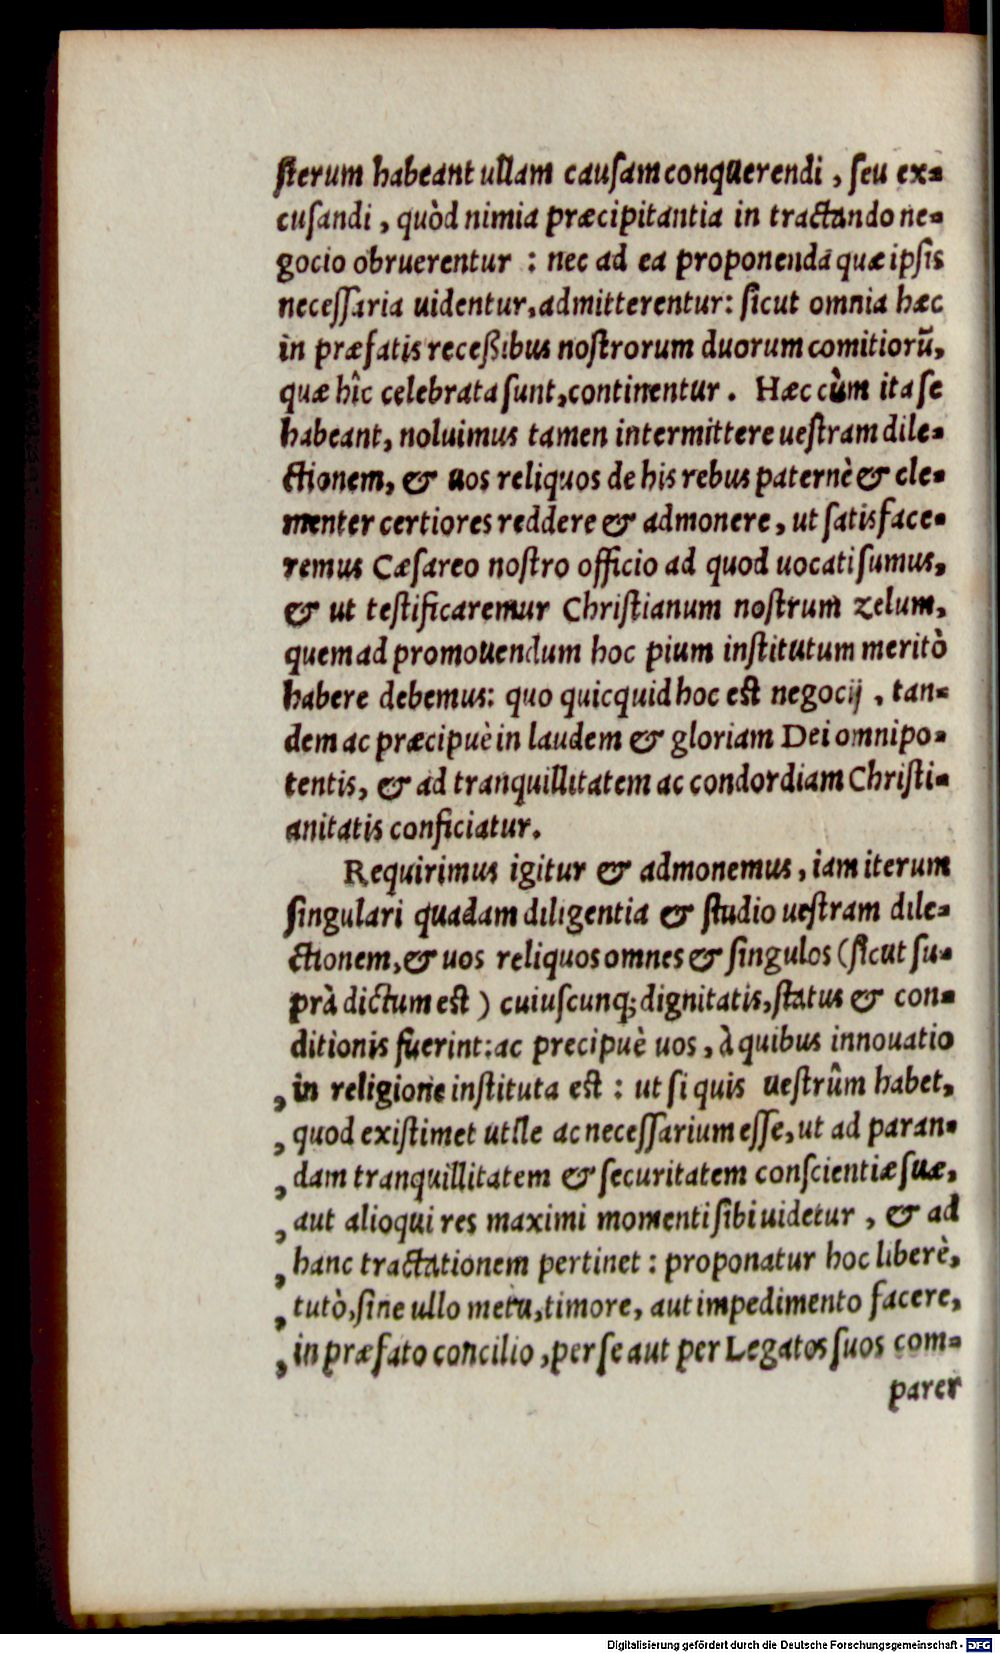 sterum habeant ullam causam conquerendi, seu ex-
cusandi, quòd nimia præcipitantia in tractando ne-
gocio obruerentur : nec ad ea proponenda quæ ipsis
necessaria uidentur, admitterentur: sicut omnia hæc
in præfatis receßibus nostrorum duorum comitiorũ,
quæ hîc celebrata sunt, continentur. Hæc cùm ita se
habeant, noluimus tamen intermittere uestram dile-
ctionem, & uos reliquos de his rebus paternè & cle-
menter certiores reddere & admonere, ut satisface-
remus Cæsareo nostro officio ad quod uocati sumus,
& ut testificaremur Christianum nostrum zelum,
quem ad promouendum hoc pium institutum meritò
habere debemus: quo quicquid hoc est negocij, tan-
dem ac præcipuè in laudem & gloriam Dei omnipo-
tentis, & ad tranquillitatem ac condordiam Christi-
anitatis conficiatur.
Requirimus igitur & admonemus, iam iterum
singulari quadam diligentia & studio uestram dile-
ctionem, & uos reliquos omnes & singulos (sicut su-
prà dictum est) cuiuscunq; dignitatis, status & con-
ditionis fuerint: ac precipuè uos, à quibus innouatio
, in religione instituta est : ut si quis uestrûm habet,
, quod existimet utile ac necessarium esse, ut ad paran-
, dam tranquillitatem & securitatem conscientiæ suæ,
, aut alioqui res maximi momenti sibi uidetur, & ad
, hanc tractationem pertinet : proponatur hoc liberè,
, tutò, sine ullo metu, timore, aut impedimento facere,
, in præfato concilio, per se aut per Legatos suos com-
parer
Digitalisierung gefördert durch die Deutsche Forschungsgemeinschaft - DFG